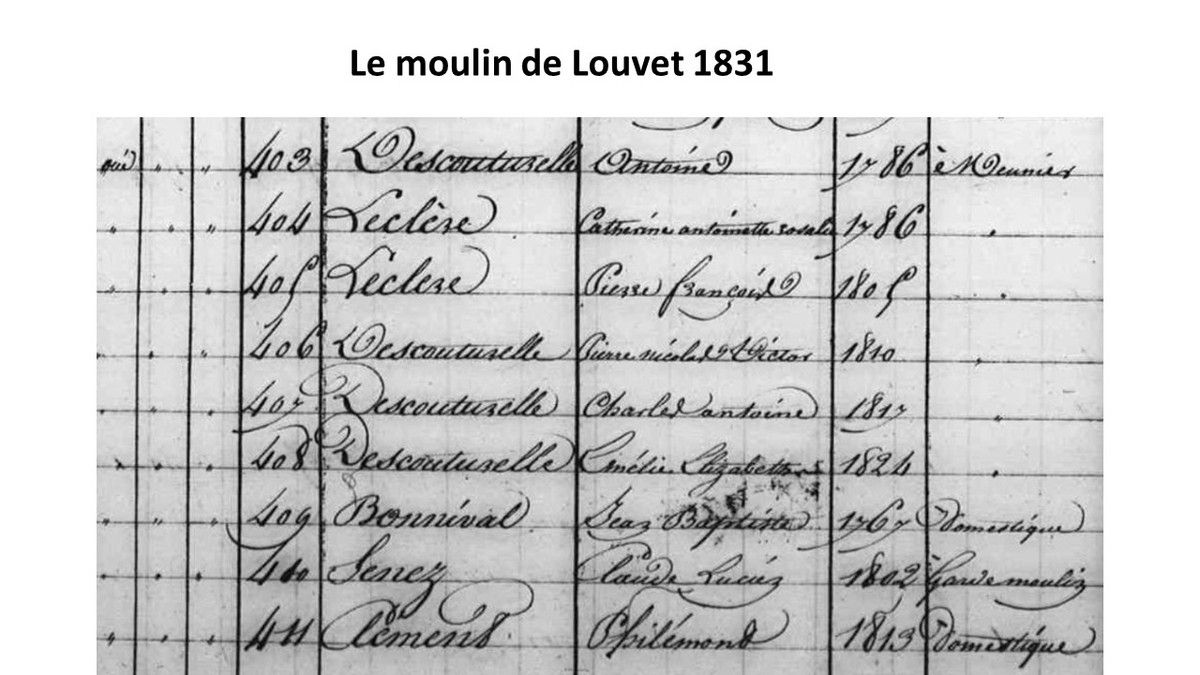 Le moulin de Louvet 1831
403 Descouturelle Antoine 1786 Meunier
404 Leclère Catherine antoinette rosalie 1786 "
405 Leclere Pierre françois 1805 "
406 Descouturelle Pierre nicolas Victor 1810 "
407 Descouturelle Charles antoine 1817 "
408 Descouturelle Emélie Elizabeth 1824 "
409 Bonnival Jean Baptiste 1767 Domestique
410 Senez Claude Lucien 1802 Garde moulin
411 Clément Philémond 1813 Domestique